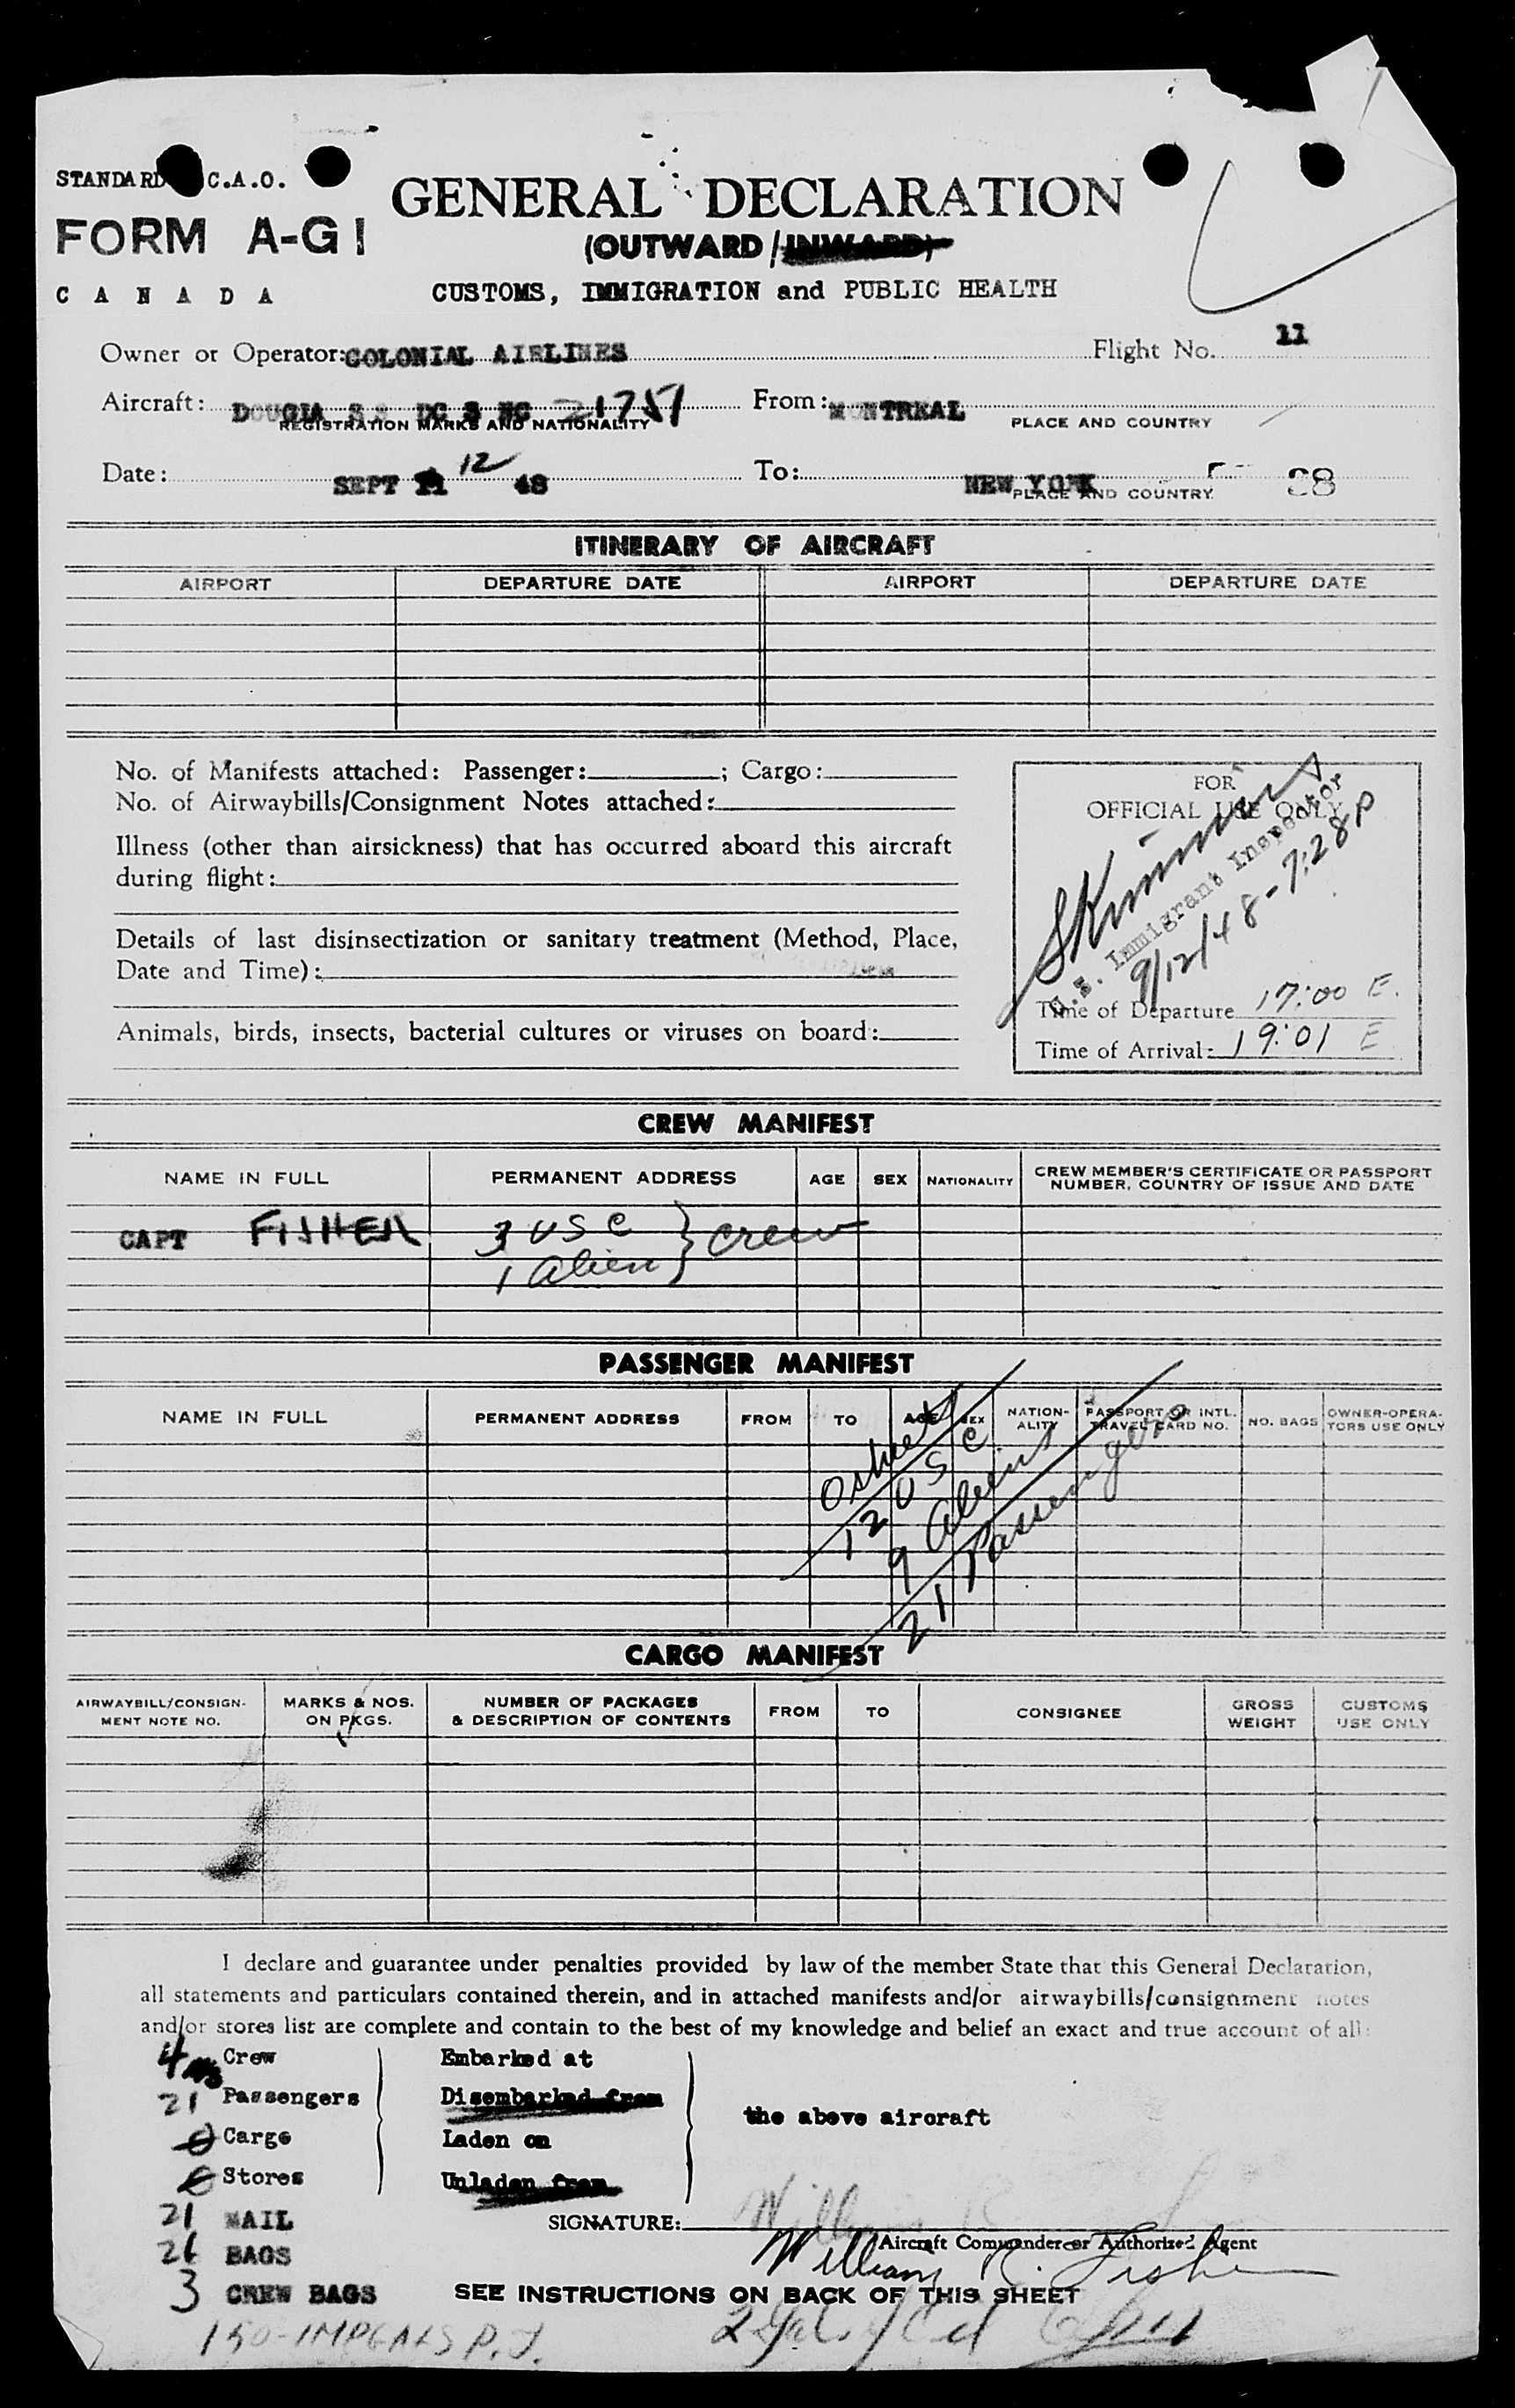 STANDARD C.A.O.
FORM A-G1
CANADA
GENERAL DECLARATION
(OUTWARD/INWARD)
CUSTOMS, IMMIGRATION and PUBLIC HEALTH
Owner or Operator: COLONIAL AIRLINES Flight No. 11
Aircraft: DOUGLAS DC 3 NC 21751 From: MONTREAL
REGISTRATION MARKS AND NATIONALITY PLACE AND COUNTRY
Date: SEPT 11 12 48 To: NEW YORK
PLACE AND COUNTRY
ITINERARY OF AIRCRAFT
AIRPORT DEPARTURE DATE AIRPORT DEPARTURE DATE
No. of Manifests attached: Passenger: ; Cargo:
No. of Airwaybills/Consignment Notes attached:
Illness (other than airsickness) that has occurred aboard this aircraft
during flight:
Details of last disinsectization or sanitary treatment (Method, Place,
Date and Time):
Animals, birds, insects, bacterial cultures or viruses on board:
FOR
OFFICIAL USE ONLY
U.S. Immigrant Inspector
9/12/48 - 7:28 P
Time of Departure 17:00 E.
Time of Arrival: 19:01 E
CREW MANIFEST
NAME IN FULL PERMANENT ADDRESS AGE SEX NATIONALITY CREW MEMBER'S CERTIFICATE OR PASSPORT
NUMBER, COUNTRY OF ISSUE AND DATE
CAPT FISHER 3 USC } crew
1 alien
PASSENGER MANIFEST
NAME IN FULL PERMANENT ADDRESS FROM TO AGE SEX NATION-
ALITY PASSPORT OR INTL.
TRAVEL CARD NO. NO. BAGS OWNER-OPERA-
TORS USE ONLY
0 sheets
12 USC
9 Aliens
21 Passengers
CARGO MANIFEST
AIRWAYBILL/CONSIGN-
MENT NOTE NO. MARKS & NOS.
ON PKGS. NUMBER OF PACKAGES
& DESCRIPTION OF CONTENTS FROM TO CONSIGNEE GROSS
WEIGHT CUSTOMS
USE ONLY
I declare and guarantee under penalties provided by law of the member State that this General Declaration,
all statements and particulars contained therein, and in attached manifests and/or airwaybills/consignment notes
and/or stores list are complete and contain to the best of my knowledge and belief an exact and true account of all:
4 Crew Embarked at
21 Passengers Disembarked from
the above aircraft
0 Cargo Laden on
0 Stores Unladen from
21 MAIL SIGNATURE:
Aircraft Commander or Authorized Agent
William R. Fisher
26 BAGS
3 CREW BAGS SEE INSTRUCTIONS ON BACK OF THIS SHEET